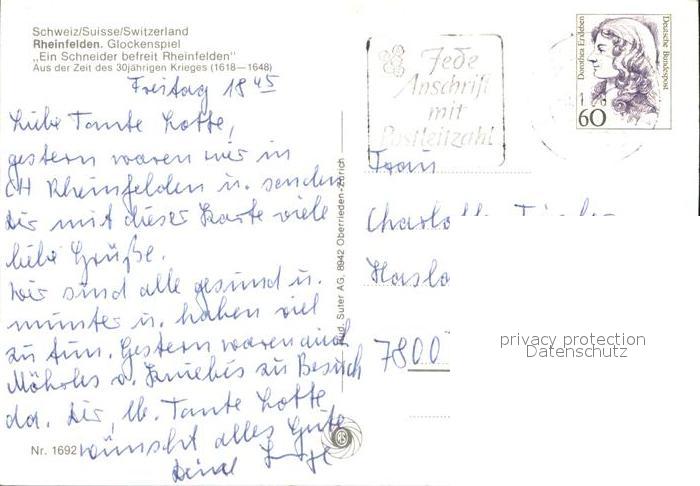 Schweiz/Suisse/Switzerland
Rheinfelden. Glockenspiel
„Ein Schneider befreit Rheinfelden"
Aus der Zeit des 30jährigen Krieges (1618–1648)
Freitag 18 45
Liebe Tante Lotte,
gestern waren wir in
CH Rheinfelden u. senden
Dir mit dieser Karte viele
liebe Grüße.
Wir sind alle gesund u.
munter u. haben viel
zu tun. Gestern waren auch
zu Besuch
da. Dir, lb. Tante Lotte
wünscht alles Gute
Deine
Nr. 1692
Suter AG, 8942 Oberrieden-Zürich
Jede
Anschrift
mit
Postleitzahl
Dorothea Erxleben
Deutsche Bundespost
60
Frau
7800
privacy protection
Datenschutz